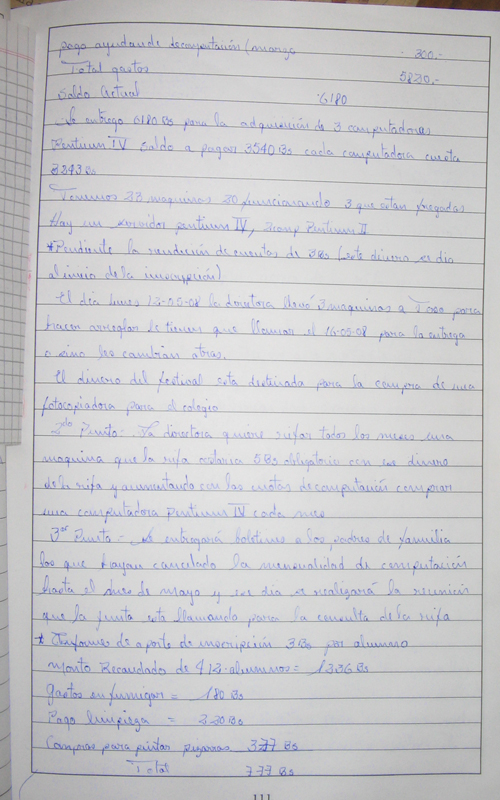 Pago ayudande de computación (monga 300.-
Total gastos 5820.-
Saldo Actual 6180
Se entrego 6180 Bs para la adquisición de 3 computadoras
Pentium IV saldo a pagar 3540 Bs cada computadora cuesta
3243 Bs
Tenemos 23 maquinas 20 funcionando 3 que estan fregadas
Hay un servidor pentium IV, 2comp Pentium II
*Pendiente la rendición de cuentas de 3Bs (este dinero se dio
al inicio de la inscripción)
El día lunes 12-05-08 la directora llevó 3 maquinas a para
hacer arreglar le tienen que llamar el 16-05-08 para la entrega
o sino les cambian otras.
El dinero del festival esta destinada para la compra de una
fotocopiadora para el colegio
2do Punto.- La directora quiere rifar todos los meses una
maquina que la rifa costaria 5Bs obligatorio con ese dinero
de la rifa y aumentando con las cuotas de computación comprar
una computadora pentium IV cada mes
3er Punto.- Se entregará boletines a los padres de familia
los que hayan cancelado la mensualidad de computación
hasta el mes de mayo y ese dia se realizará la reunion
que la junta esta llamando para la consulta de la rifa
* Informes de aporte de inscripción 3Bs por alumno
Monto Recaudado de 412.alumnos = 1336 Bs
Gastos en fumigar = 180 Bs
Pago limpieza = 220 Bs
Compras para pintar pizarras 377 Bs
Total 777 Bs
111